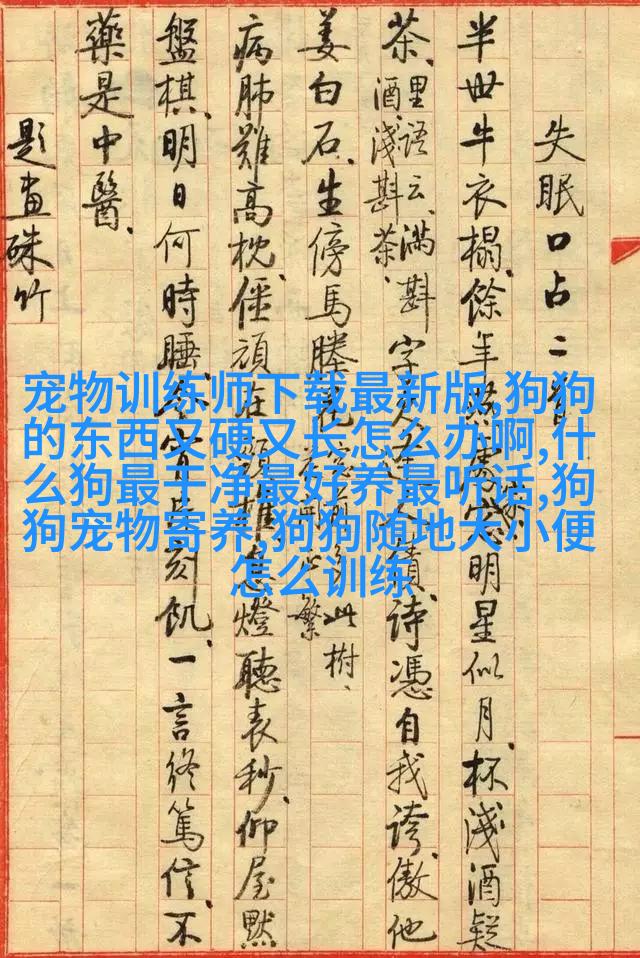 失眠口占二首
半世牛衣榻、餘年明星似月、杯淺酒疑
茶、里語云、滿斟酒、淺斟茶、字債、詩憑自我誇、傲他
姜白石、生傍馬塍花此樹、
病肺難高枕、僵頑在頸椎燈聽表秒、仰屋默
盤棋、明日何時睡、刻飢、一言終篤信、不
藥是中醫、
題畫硃竹
宠物训练师下载最新版,狗狗
的东西又硬又长怎么办啊,什
么狗最干净最好养最听话,狗
狗宠物寄养,狗狗随地大小便
怎么训练